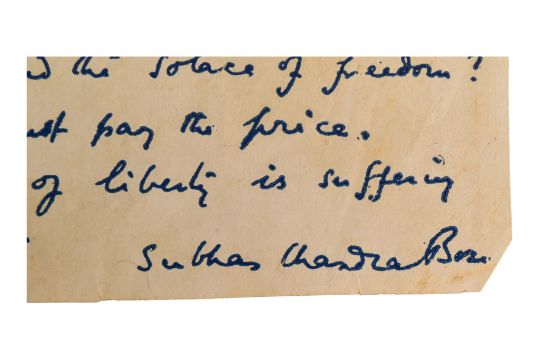 the solace of freedom?
pay the price.
of liberty is suffering
Subhas Chandra Bose